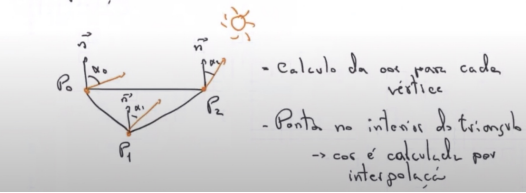 n⃗
n⃗
α₀
α₂
P₀
n⃗
P₂
α₁
P₁
- Calculo da cor para cada
vértice
- Ponto no interior do triangulo
-> cor é calculada por
interpolaçã